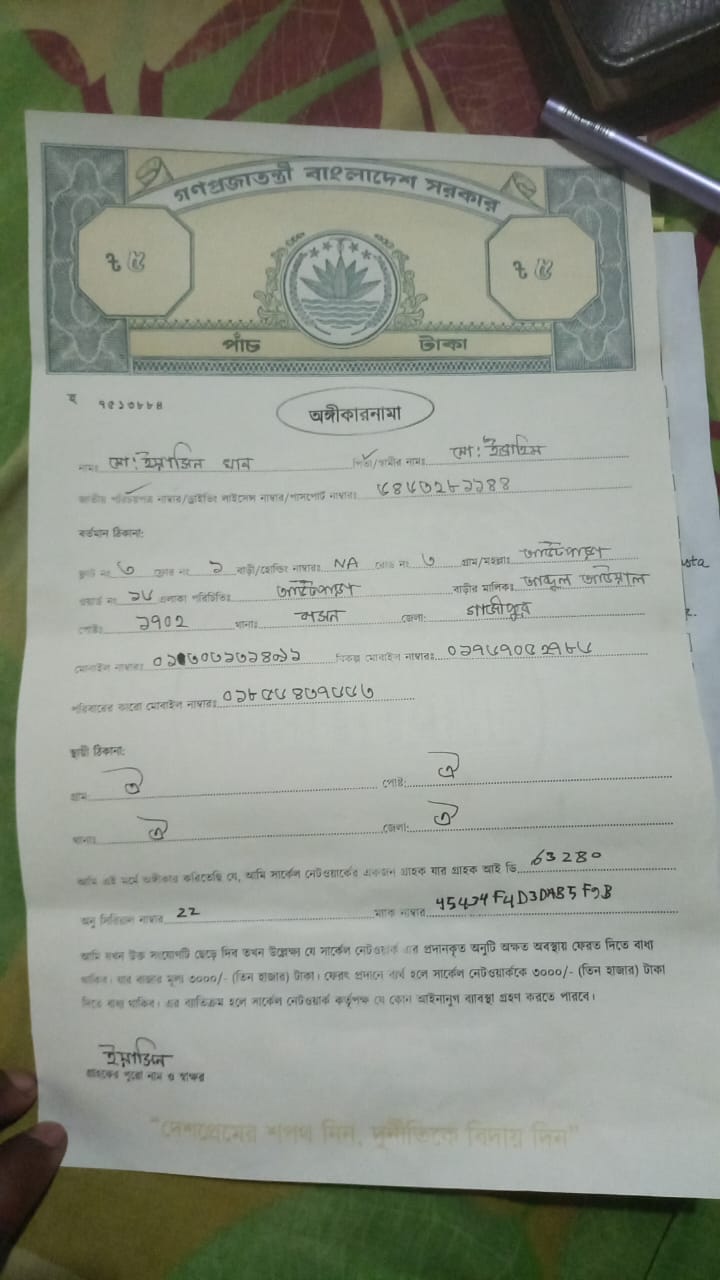 গণপ্রজাতন্ত্রী বাংলাদেশ সরকার
৳ ৫ ৳ ৫
পাঁচ টাকা
অঙ্গীকারনামা
নামঃ মো: ইয়াসিন খান পিতা/স্বামীর নামঃ মো: ইব্রাহিম
জাতীয় পরিচয়পত্র নাম্বার/ড্রাইভিং লাইসেন্স নাম্বার/পাসপোর্ট নাম্বারঃ
বর্তমান ঠিকানা:
ফ্ল্যাট নং ৩ ফ্লোর নং ১ বাড়ী/হোল্ডিং নাম্বারঃ NA রোড নং ৩ গ্রাম/মহল্লাঃ
ওয়ার্ড নং ১৬ এলাকা পরিচিতিঃ বাড়ীর মালিকঃ আব্দুল আউয়াল
পোষ্টঃ ১৭০২ থানাঃ জেলা: গাজীপুর
মোবাইল নাম্বারঃ বিকল্প মোবাইল নাম্বারঃ
পরিবারের কারো মোবাইল নাম্বারঃ
স্থায়ী ঠিকানা:
গ্রামঃ ঐ পোষ্ট: ঐ
থানাঃ ঐ জেলা: ঐ
আমি এই মর্মে অঙ্গীকার করিতেছি যে, আমি সার্কেল নেটওয়ার্কের একজন গ্রাহক যার গ্রাহক আই ডি 63280
অনু সিরিয়াল নাম্বার 22 ম্যাক নাম্বার
আমি যখন উক্ত সংযোগটি ছেড়ে দিব তখন উল্লেক্ষ্য যে সার্কেল নেটওয়ার্ক এর প্রদানকৃত অনুটি অক্ষত অবস্থায় ফেরত দিতে বাধ্য
থাকিব। যার বাজার মূল্য ৩০০০/- (তিন হাজার) টাকা। ফেরৎ প্রদানে ব্যর্থ হলে সার্কেল নেটওয়ার্ককে ৩০০০/- (তিন হাজার) টাকা
দিতে বাধ্য থাকিব। এর ব্যতিক্রম হলে সার্কেল নেটওয়ার্ক কর্তৃপক্ষ যে কোন আইনানুগ ব্যাবস্থা গ্রহণ করতে পারবে।
ইয়াসিন
গ্রাহকের পুরো নাম ও স্বাক্ষর
"দেশপ্রেমের শপথ নিন, দুর্নীতিকে বিদায় দিন"